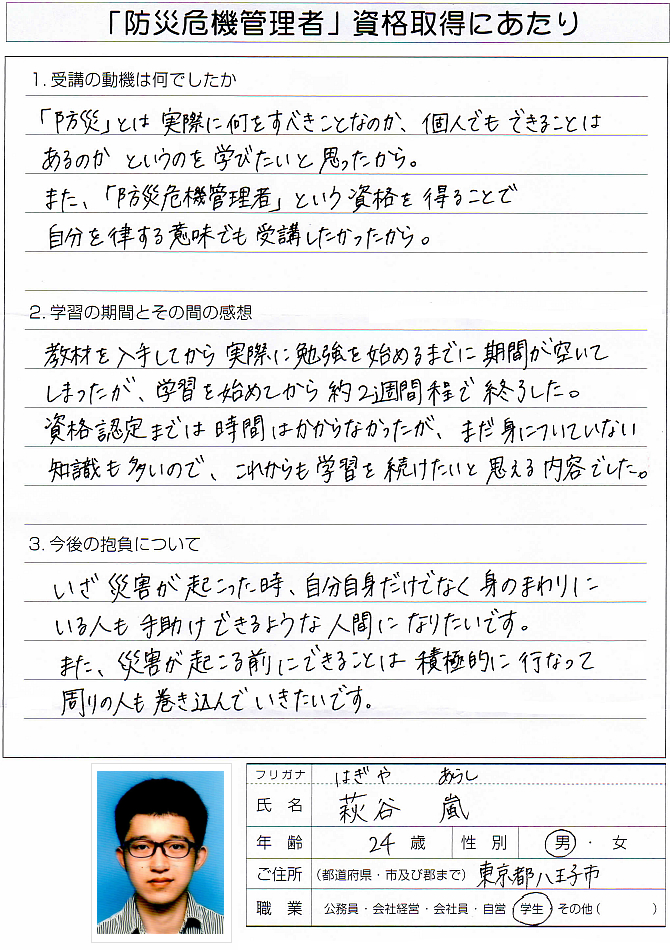 「防災危機管理者」資格取得にあたり
1. 受講の動機は何でしたか
「防災」とは 実際に何をすべきことなのか、個人でも できることは
あるのか というのを 学びたいと 思ったから。
また、「防災危機管理者」という 資格を 得ることで
自分を 律する意味でも 受講したかったから。
2. 学習の期間とその間の感想
教材を 入手してから 実際に 勉強を 始めるまでに 期間が 空いて
しまったが、学習を 始めてから 約2週間程で 終了した。
資格認定までは 時間はかからなかったが、まだ 身についていない
知識も 多いので、これからも 学習を 続けたいと 思える 内容でした。
3. 今後の抱負について
いざ 災害が 起こった時、自分自身だけでなく 身のまわりに
いる人も 手助けできるような 人間に なりたいです。
また、災害が 起こる前にできることは 積極的に 行なって
周りの人も 巻き込んで いきたいです。
フリガナ はぎや あらし
氏名 萩谷 嵐
年齢 24歳 性別 男・女
ご住所 (都道府県・市及び郡まで) 東京都八王子市
職業 公務員・会社経営・会社員・自営・学生・その他( )